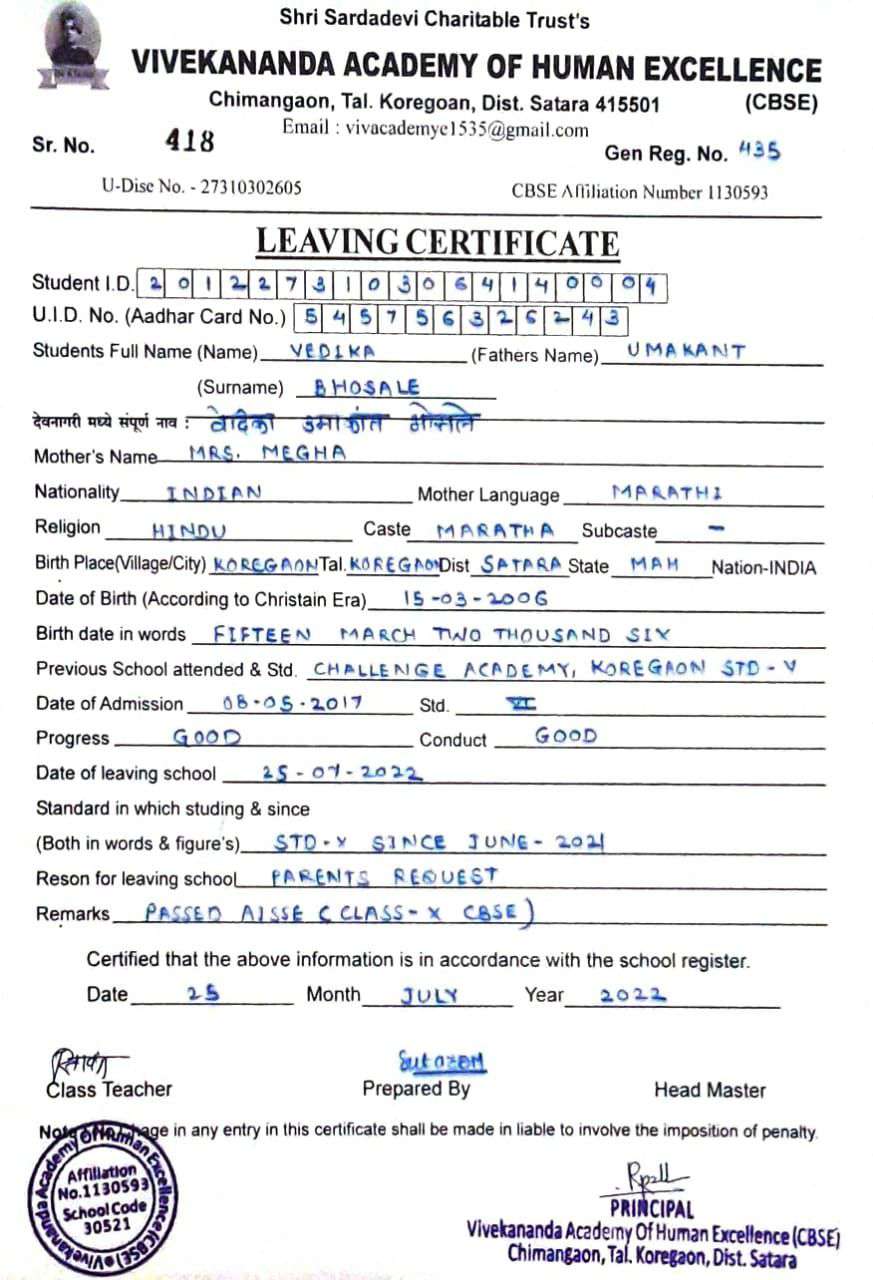 Shri Sardadevi Charitable Trust's
VIVEKANANDA ACADEMY OF HUMAN EXCELLENCE
Chimangaon, Tal. Koregoan, Dist. Satara 415501 (CBSE)
Email : vivacademye1535@gmail.com
Sr. No. 418 Gen Reg. No. 435
U-Disc No. - 27310302605 CBSE Affiliation Number 1130593
LEAVING CERTIFICATE
Student I.D. 2012273103064140004
U.I.D. No. (Aadhar Card No.) 545756326243
Students Full Name (Name) VEDIKA (Fathers Name) UMAKANT
(Surname) BHOSALE
देवनागरी मध्ये संपूर्ण नाव : वेदिका उमाकांत भोसले
Mother's Name MRS. MEGHA
Nationality INDIAN Mother Language MARATHI
Religion HINDU Caste MARATHA Subcaste -
Birth Place(Village/City) KOREGAON Tal. KOREGAON Dist SATARA State MAH Nation-INDIA
Date of Birth (According to Christain Era) 15-03-2006
Birth date in words FIFTEEN MARCH TWO THOUSAND SIX
Previous School attended & Std. CHALLENGE ACADEMY, KOREGAON STD-V
Date of Admission 08-05-2017 Std. VI
Progress GOOD Conduct GOOD
Date of leaving school 25-07-2022
Standard in which studing & since
(Both in words & figure's) STD-X SINCE JUNE-2021
Reson for leaving school PARENTS REQUEST
Remarks PASSED AISSE (CLASS-X CBSE)
Certified that the above information is in accordance with the school register.
Date 25 Month JULY Year 2022
Class Teacher Prepared By Head Master
in any entry in this certificate shall be made in liable to involve the imposition of penalty.
Vivekananda Academy Of Human Excellence (CBSE)
Affiliation
No.1130593
School Code
30521
PRINCIPAL
Vivekananda Academy Of Human Excellence (CBSE)
Chimangaon, Tal. Koregaon, Dist. Satara